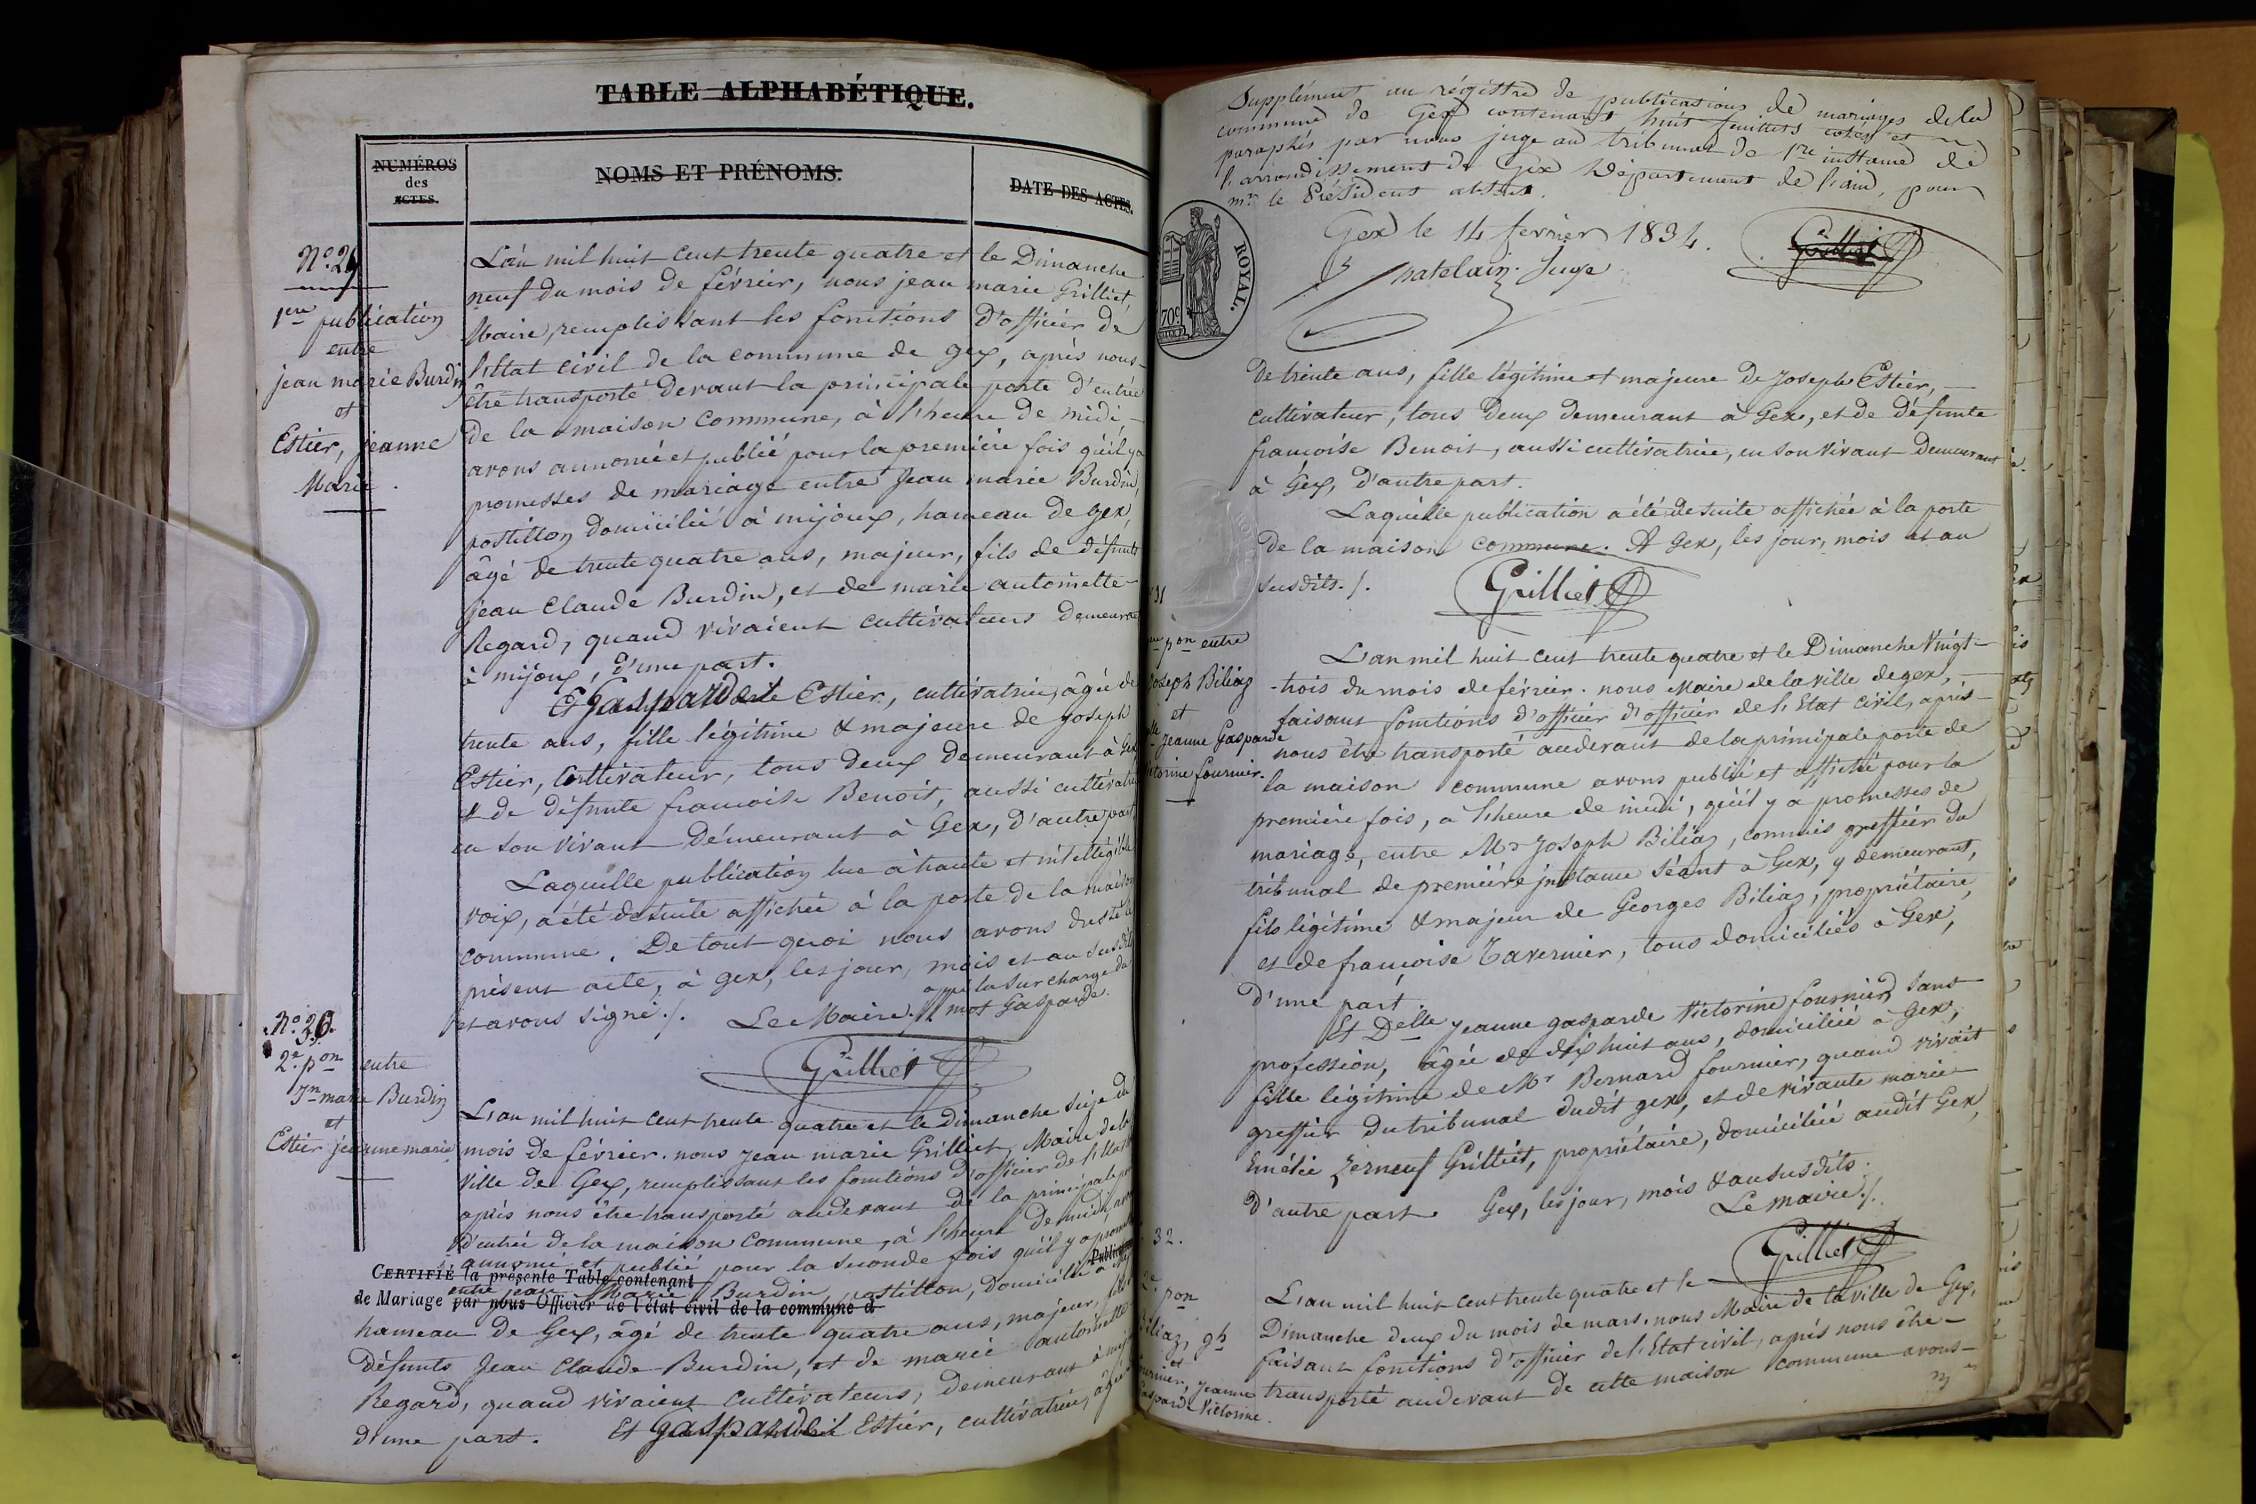 TABLE ALPHABÉTIQUE.
NUMÉROS
des
ACTES.
NOMS ET PRÉNOMS.
DATE DES ACTES.
N.o 29
1ere publication
entre
jean marie Burdin
et
Estier, jeanne
Marie.
L'an mil huit cent trente quatre et le Dimanche
neuf du mois de février, nous jean marie Grilliet,
Maire, remplissant les fonctions d'officier de
l'Etat civil de la commune de gex, après nous
être transporté devant la principale porte d'entrée
de la maison commune, à l'heure de midi
avons annoncé et publié pour la première fois qu'il y a
promesses de mariage entre Jean marie Burdin,
postillon domicilié à mijoux, hameau de gex,
âgé de trente quatre ans, majeur, fils de défunts
jean Claude Burdin, et de marie antoinette
Regard, quand vivaient cultivateurs demeurant
à mijoux, d'une part.
Et gasparde Estier, cultivatrice, âgée de
trente ans, fille légitime & majeure de joseph
Estier, Cultivateur, tous deux demeurant à Gex,
& de défunte francoise Benoit, aussi cultivatrice
en son vivant demeurant à Gex, d'autre part.
Laquelle publication lue à haute et intelligible
voix, a été de suite affichée à la porte de la maison
commune. De tout quoi nous avons dressé le
présent acte, à gex, les jour, mois et an susdits
et avons signé ./. Le Maire, la surcharge du
mot Gasparde.
Grilliet
N.o 30.
2.e pon entre
Jn marie Burdin
et
Estier jeanne marie
L'an mil huit cent trente quatre et le Dimanche seize du
mois de février. nous jean marie Grilliet, Maire de la
ville de Gex, remplissant les fonctions d'officier de l'Etat
après nous être transporté audevant de la principale porte
d'entrée de la maison commune, à l'heure de midi, avons
annoncé et publié pour la seconde fois qu'il y a promesses
Publications
CERTIFIÉ la présente Table contenant
entre jean Marie Burdin, postillon, domicilié à
de Mariage par nous Officier de l'état civil de la commune d
hameau de Gex, âgé de trente quatre ans, majeur, fils
défunts Jean Claude Burdin, et de marie antoinette
Regard, quand vivaient cultivateurs, demeurant à
d'une part. Et gasparde Estier, cultivatrice, âgée
Supplément au régistre de publications de mariages de la
commune de Gex contenant huit feuillets cotés et
paraphés par nous juge au tribunal de 1re instance de
l'arrondissement de Gex Département de l'ain, pour
mr le Président absent.
Gex le 14 fevrier 1834.
Chatelain. Juge
Grilliet
ROYAL.
70c
de trente ans, fille légitime et majeure de Joseph Estier,
cultivateur, tous deux demeurant à Gex, et de défunte
françoise Benoit, aussi cultivatrice, en son vivant demeurant
à Gex, d'autre part.
Laquelle publication a été de suite affichée à la porte
de la maison commune. A Gex, les jour, mois et an
susdits. /.
Grilliet
31
pon entre
Joseph Biliaz
et
Jeanne Gasparde
Victorine fournier.
L'an mil huit cent trente quatre et le Dimanche Vingt-
-trois du mois de février. nous Maire de la ville de gex,
faisant fonctions d'officier d'officier de l'Etat civil, après
nous être transporté audevant de la principale porte de
la maison commune avons publié et affiché pour la
première fois, à l'heure de midi, qu'il y a promesses de
mariage, entre Mr Joseph Biliaz, commis greffier du
tribunal de première instance séant à Gex, y demeurant,
fils légitime & majeur de Georges Biliaz, propriétaire,
et de françoise Tavernier, tous domiciliés à Gex,
d'une part.
Et Delle jeanne gasparde Victorine fournier, sans
profession, âgée de dix huit ans, domiciliée à Gex,
fille légitime de Mr Bernard fournier, quand vivait
greffier du tribunal dudit gex, et de vivante marie
Emélie Zerneuf Grilliet, propriétaire, domiciliée audit Gex,
d'autre part. Gex, les jour, mois & an susdits.
Le maire ./.
Grilliet
32.
2e. pon
Biliaz, Jh
et
fournier, jeanne
Gasparde Victorine.
L'an mil huit cent trente quatre et le
Dimanche deux du mois de mars. nous Maire de la ville de Gex,
faisant fonctions d'officier de l'Etat civil, après nous être
transporté audevant de cette maison commune avons